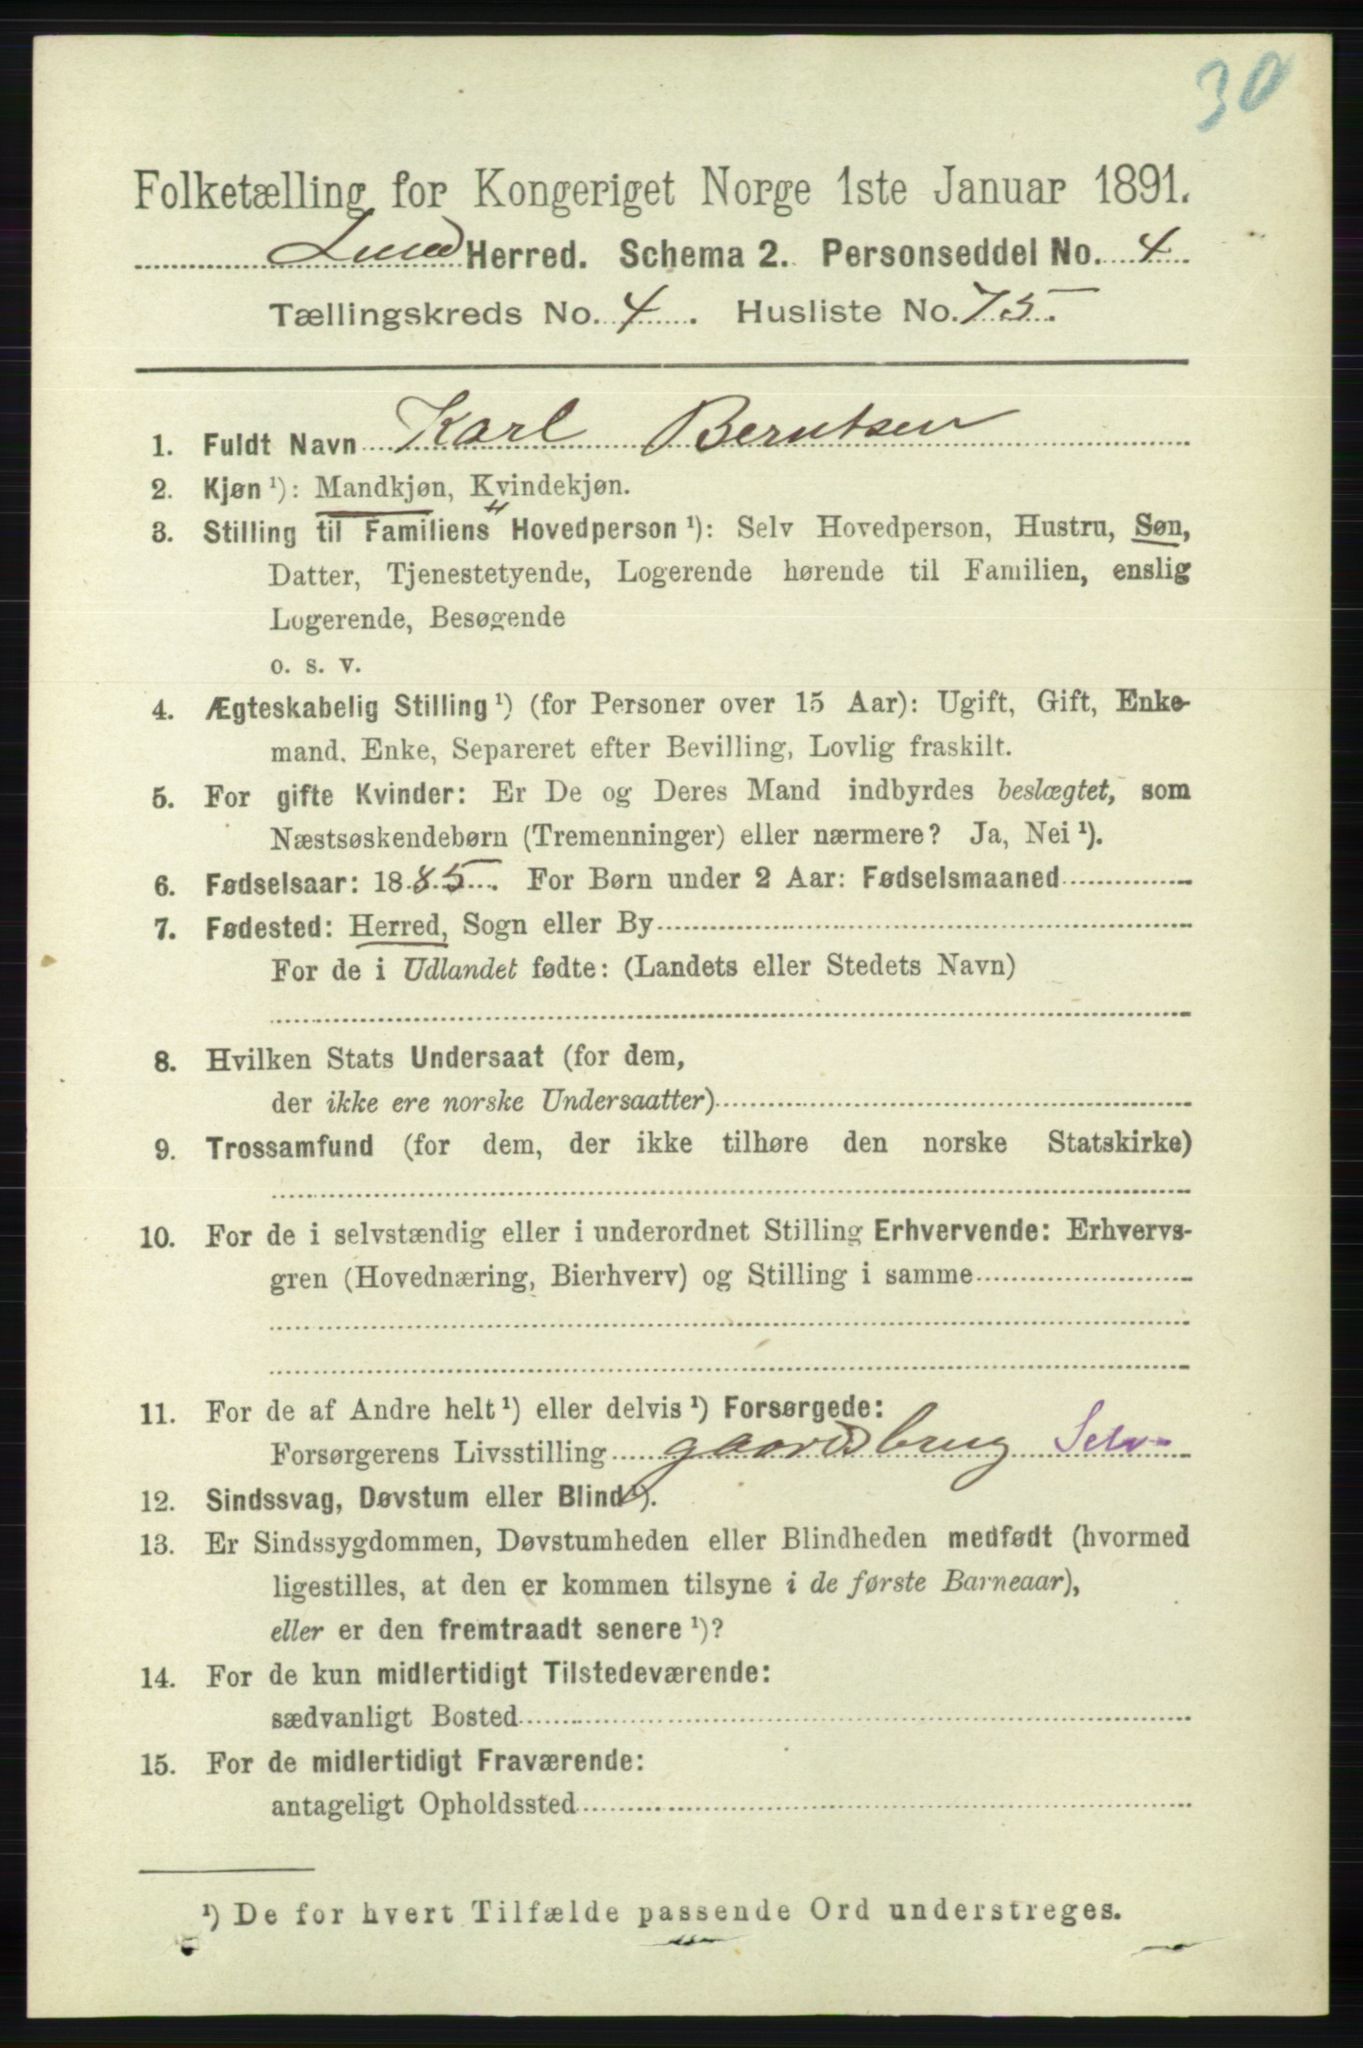 30
Folketælling for Kongeriget Norge 1ste Januar 1891.
Lund Herred. Schema 2. Personseddel No. 4
Tællingskreds No. 4. Husliste No. 75.
1. Fuldt Navn Karl Berntsen
2. Kjøn ¹): Mandkjøn, Kvindekjøn.
3. Stilling til Familiens Hovedperson ¹): Selv Hovedperson, Hustru, Søn,
Datter, Tjenestetyende, Logerende hørende til Familien, enslig
Logerende, Besøgende
o. s. v.
4. Ægteskabelig Stilling ¹) (for Personer over 15 Aar): Ugift, Gift, Enke-
mand, Enke, Separeret efter Bevilling, Lovlig fraskilt.
5. For gifte Kvinder: Er De og Deres Mand indbyrdes beslægtet, som
Næstsøskendebørn (Tremenninger) eller nærmere? Ja, Nei ¹).
6. Fødselsaar: 1885. For Børn under 2 Aar: Fødselsmaaned
7. Fødested: Herred, Sogn eller By
For de i Udlandet fødte: (Landets eller Stedets Navn)
8. Hvilken Stats Undersaat (for dem,
der ikke ere norske Undersaatter)
9. Trossamfund (for dem, der ikke tilhøre den norske Statskirke)
10. For de i selvstændig eller i underordnet Stilling Erhvervende: Erhvervs-
gren (Hovednæring, Bierhverv) og Stilling i samme
11. For de af Andre helt ¹) eller delvis ¹) Forsørgede:
Forsørgerens Livsstilling gaardsbrug Selv-
12. Sindssvag, Døvstum eller Blind ¹).
13. Er Sindssygdommen, Døvstumheden eller Blindheden medfødt (hvormed
ligestilles, at den er kommen tilsyne i de første Barneaar),
eller er den fremtraadt senere ¹)?
14. For de kun midlertidigt Tilstedeværende:
sædvanligt Bosted
15. For de midlertidigt Fraværende:
antageligt Opholdssted
¹) De for hvert Tilfælde passende Ord understreges.